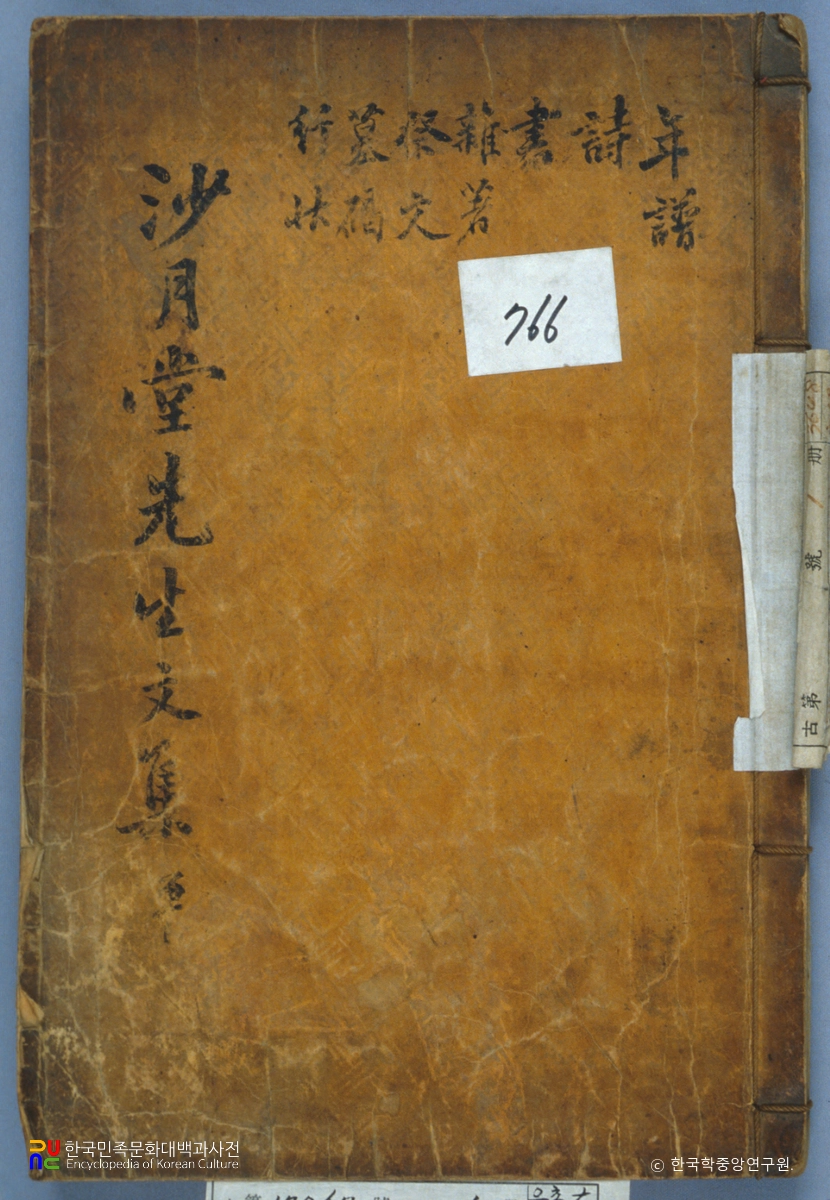 年譜
詩
書
雜著
祭文
墓碣
行狀
沙月堂先生文集 單
766
册
號
古第
한국민족문화대백과사전
Encyclopedia of Korean Culture
© 한국학중앙연구원